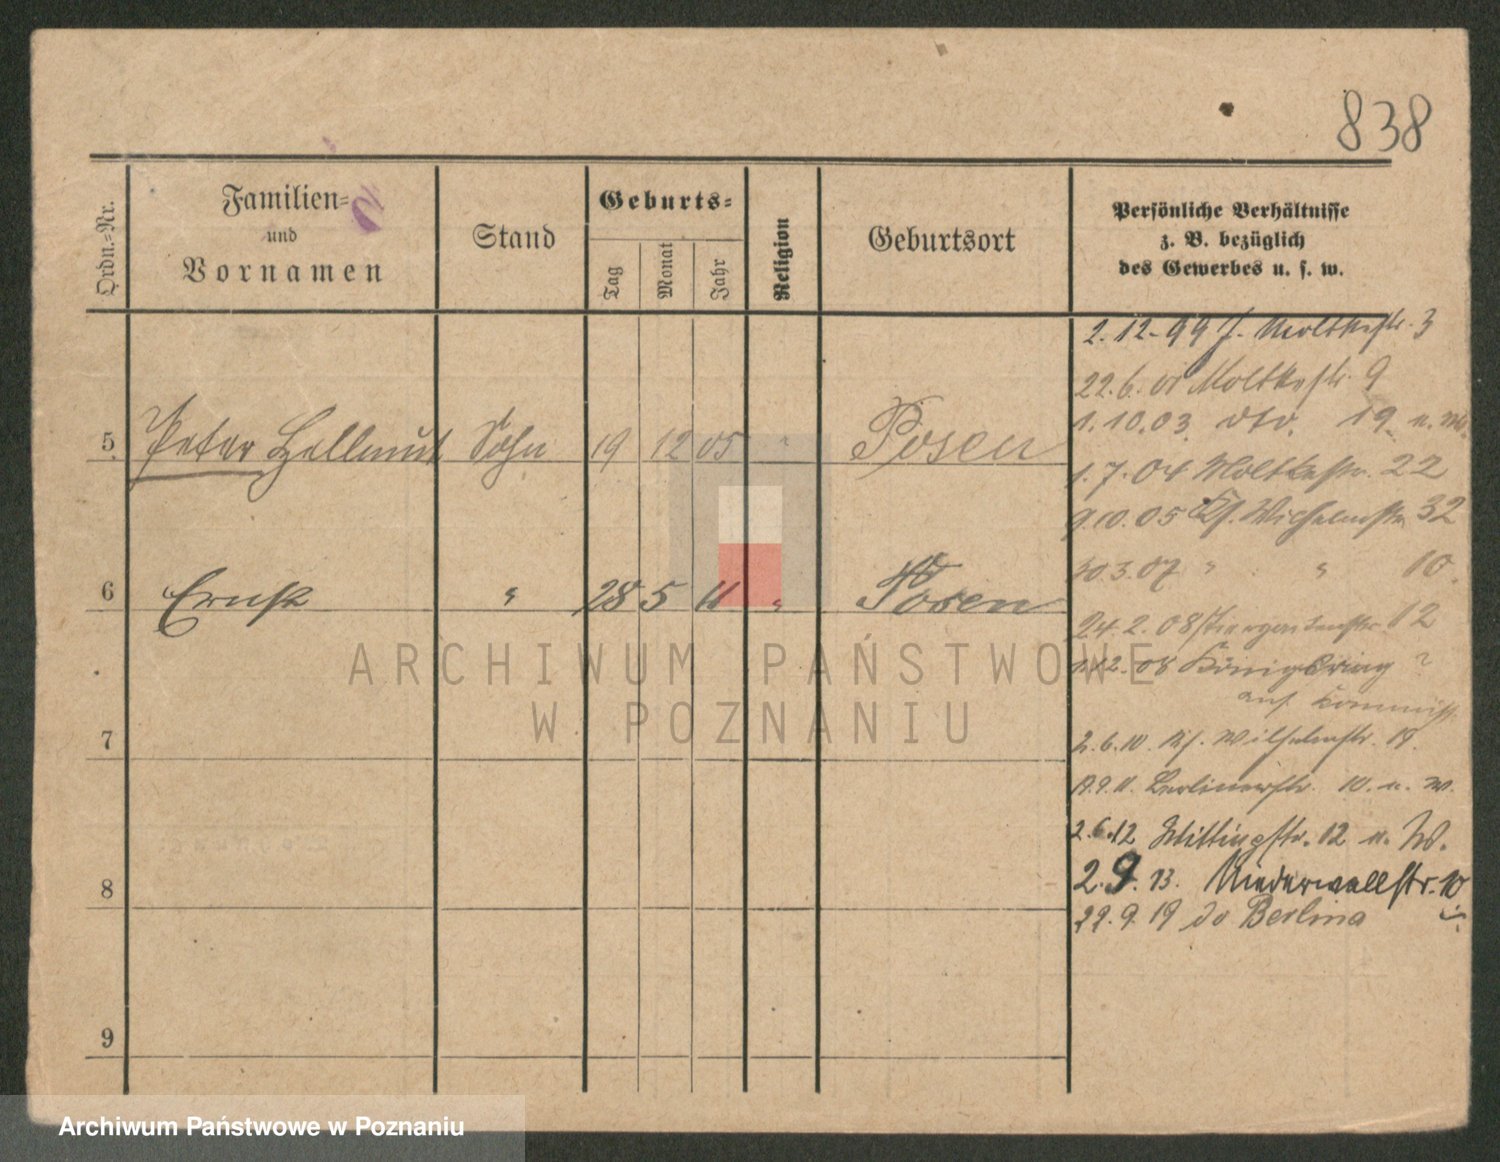 838
Ordn.-Nr.
Familien-
und
Vornamen
Stand
Geburts-
Tag
Monat
Jahr
Religion
Geburtsort
Persönliche Verhältnisse
z. B. bezüglich
des Gewerbes u. s. w.
2.12.99 J. Moltkestr. 3
22.6.01 Moltkestr. 9
1.10.03. dto. 19 u. W.
5 Peter Hellmut Sohn 19 12 05 " Posen
1.7.04 Moltkestr. 22
9.10.05 Kf. Wilhelmstr. 32
30.3.07 " " 10.
6 Ernst " 28 5 11 " Posen
24.2.08 Tiergartenstr. 12
1.12.08 Königsring ?
auf
7
2.6.10. Kf. Wilhelmstr. 19.
Berlinerstr. 10. u. W.
2.6.12 Wittingstr. 12 u. W.
8
2.9.13. Niederwallstr. 10
22.9.19 do Berlina
9
ARCHIWUM PAŃSTWOWE
W POZNANIU
Archiwum Państwowe w Poznaniu